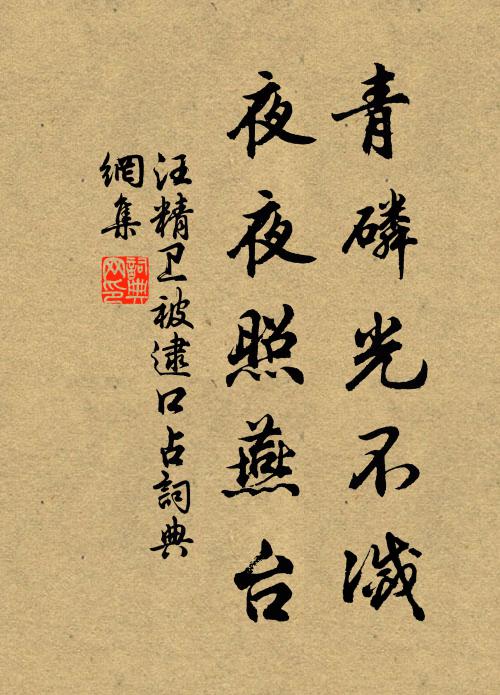 青磷光不滅
夜夜照燕台
汪精卫被逮口占詞典
網集
詞典
网印